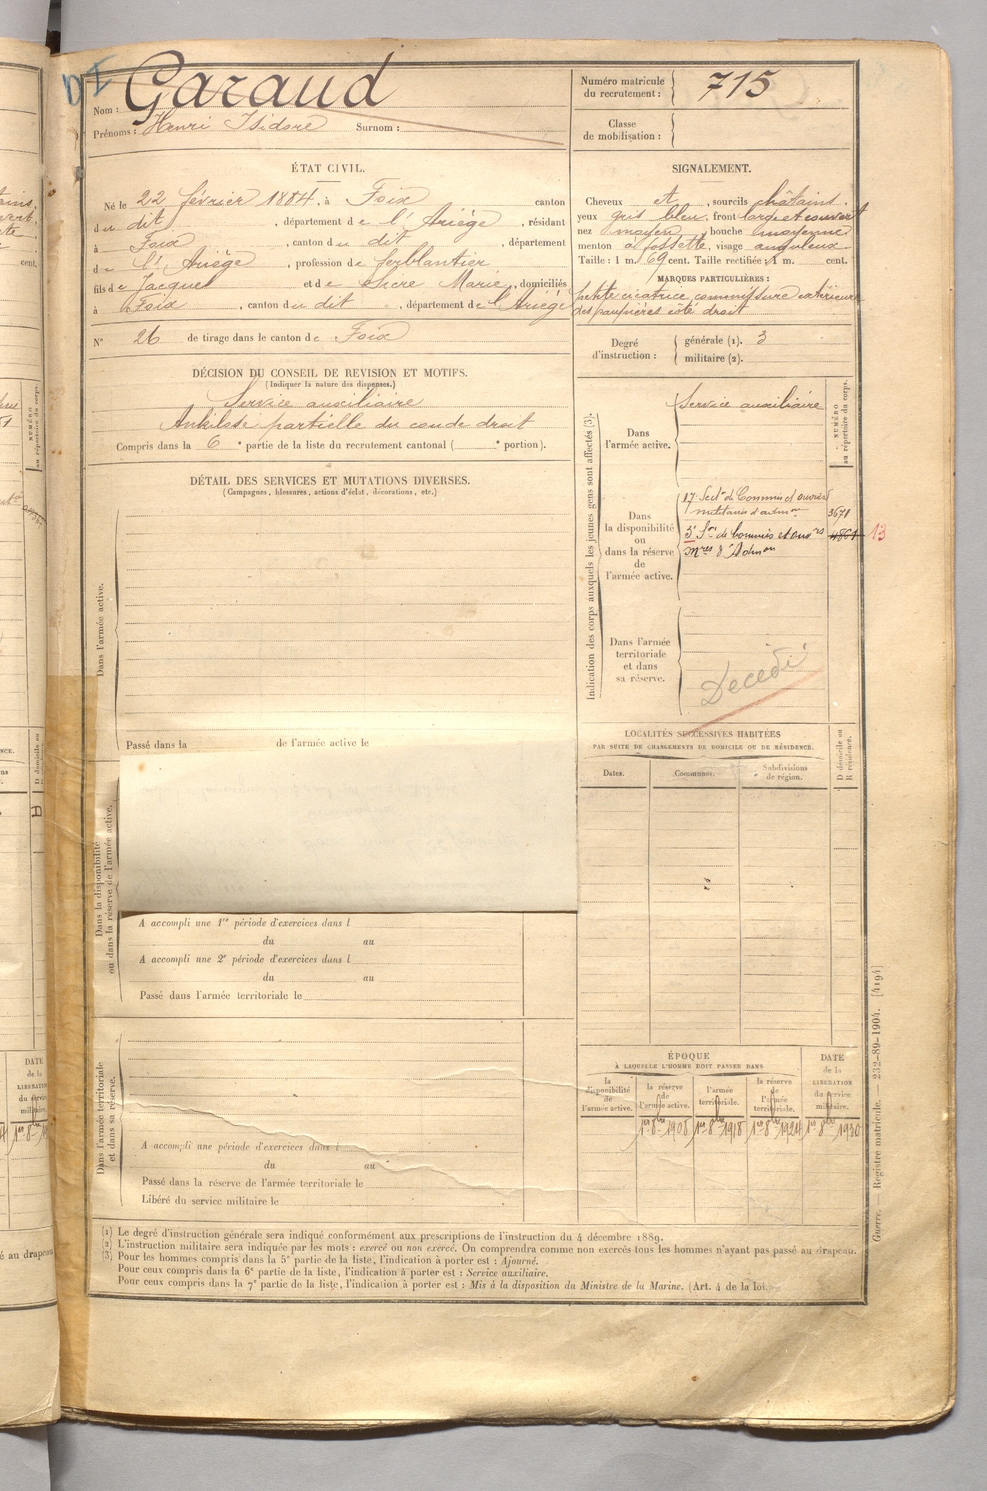 D I
Nom : Garaud
Prénoms : Henri Isidore Surnom :
Numéro matricule du recrutement : 715
Classe de mobilisation :
ÉTAT CIVIL.
Né le 22 février 1884, à Foix canton
du dit, département de l'Ariège, résidant
à Foix, canton du dit, département
de l'Ariège, profession de ferblantier
fils de Jacques et de Sicre Marie, domiciliés
à Foix, canton du dit, département de l'Ariège
N° 26 de tirage dans le canton de Foix
SIGNALEMENT.
Cheveux et, sourcils châtains.
yeux gris bleu, front large et couvert
nez moyen, bouche moyenne
menton à fossette, visage anguleux
Taille : 1 m. 69 cent. Taille rectifiée : 1 m. cent.
MARQUES PARTICULIÈRES :
petite cicatrice commissure extérieure
des paupières côté droit
Degré d'instruction : générale (1). 3
militaire (2).
DÉCISION DU CONSEIL DE REVISION ET MOTIFS.
(Indiquer la nature des dispenses.)
Service auxiliaire
Ankilose partielle du coude droit
Compris dans la 6e partie de la liste du recrutement cantonal ( e portion).
DÉTAIL DES SERVICES ET MUTATIONS DIVERSES.
(Campagnes, blessures, actions d'éclat, décorations, etc.)
Dans l'armée active.
Passé dans la de l'armée active le
Dans la disponibilité
ou dans la réserve de l'armée active.
A accompli une 1re période d'exercices dans l
du au
A accompli une 2e période d'exercices dans l
du au
Passé dans l'armée territoriale le
Dans l'armée territoriale
et dans sa réserve.
A accompli une période d'exercices dans l
du au
Passé dans la réserve de l'armée territoriale le
Libéré du service militaire le
Indication des corps auxquels les jeunes gens sont affectés (3).
NUMÉRO
au répertoire du corps.
Dans
l'armée active.
Service auxiliaire
Dans
la disponibilité
ou
dans la réserve
de
l'armée active.
17e Secton de Commis et ouvriers
militaires d'admon 3671
3e Son de Commis et ouvrs 4861 13
mres d'Admon
Dans l'armée
territoriale
et dans
sa réserve.
Décédé
LOCALITÉS SUCCESSIVES HABITÉES
PAR SUITE DE CHANGEMENTS DE DOMICILE OU DE RÉSIDENCE.
D domicile ou
R résidence.
Dates. Communes. Subdivisions de région.
ÉPOQUE
À LAQUELLE L'HOMME DOIT PASSER DANS
DATE
de la
LIBÉRATION
du service
militaire.
la disponibilité de l'armée active.
la réserve de l'armée active.
l'armée territoriale.
la réserve de l'armée territoriale.
1er 8bre 1908 1er 8bre 1918 1er 8bre 1924 1er 8bre 1930
(1) Le degré d'instruction générale sera indiqué conformément aux prescriptions de l'instruction du 4 décembre 1889.
(2) L'instruction militaire sera indiquée par les mots : exercé ou non exercé. On comprendra comme non exercés tous les hommes n'ayant pas passé au drapeau.
(3) Pour les hommes compris dans la 5e partie de la liste, l'indication à porter est : Ajourné.
Pour ceux compris dans la 6e partie de la liste, l'indication à porter est : Service auxiliaire.
Pour ceux compris dans la 7e partie de la liste, l'indication à porter est : Mis à la disposition du Ministre de la Marine. (Art. 4 de la loi.)
Guerre. — Registre matricule. — 232-89-1904. [4194]